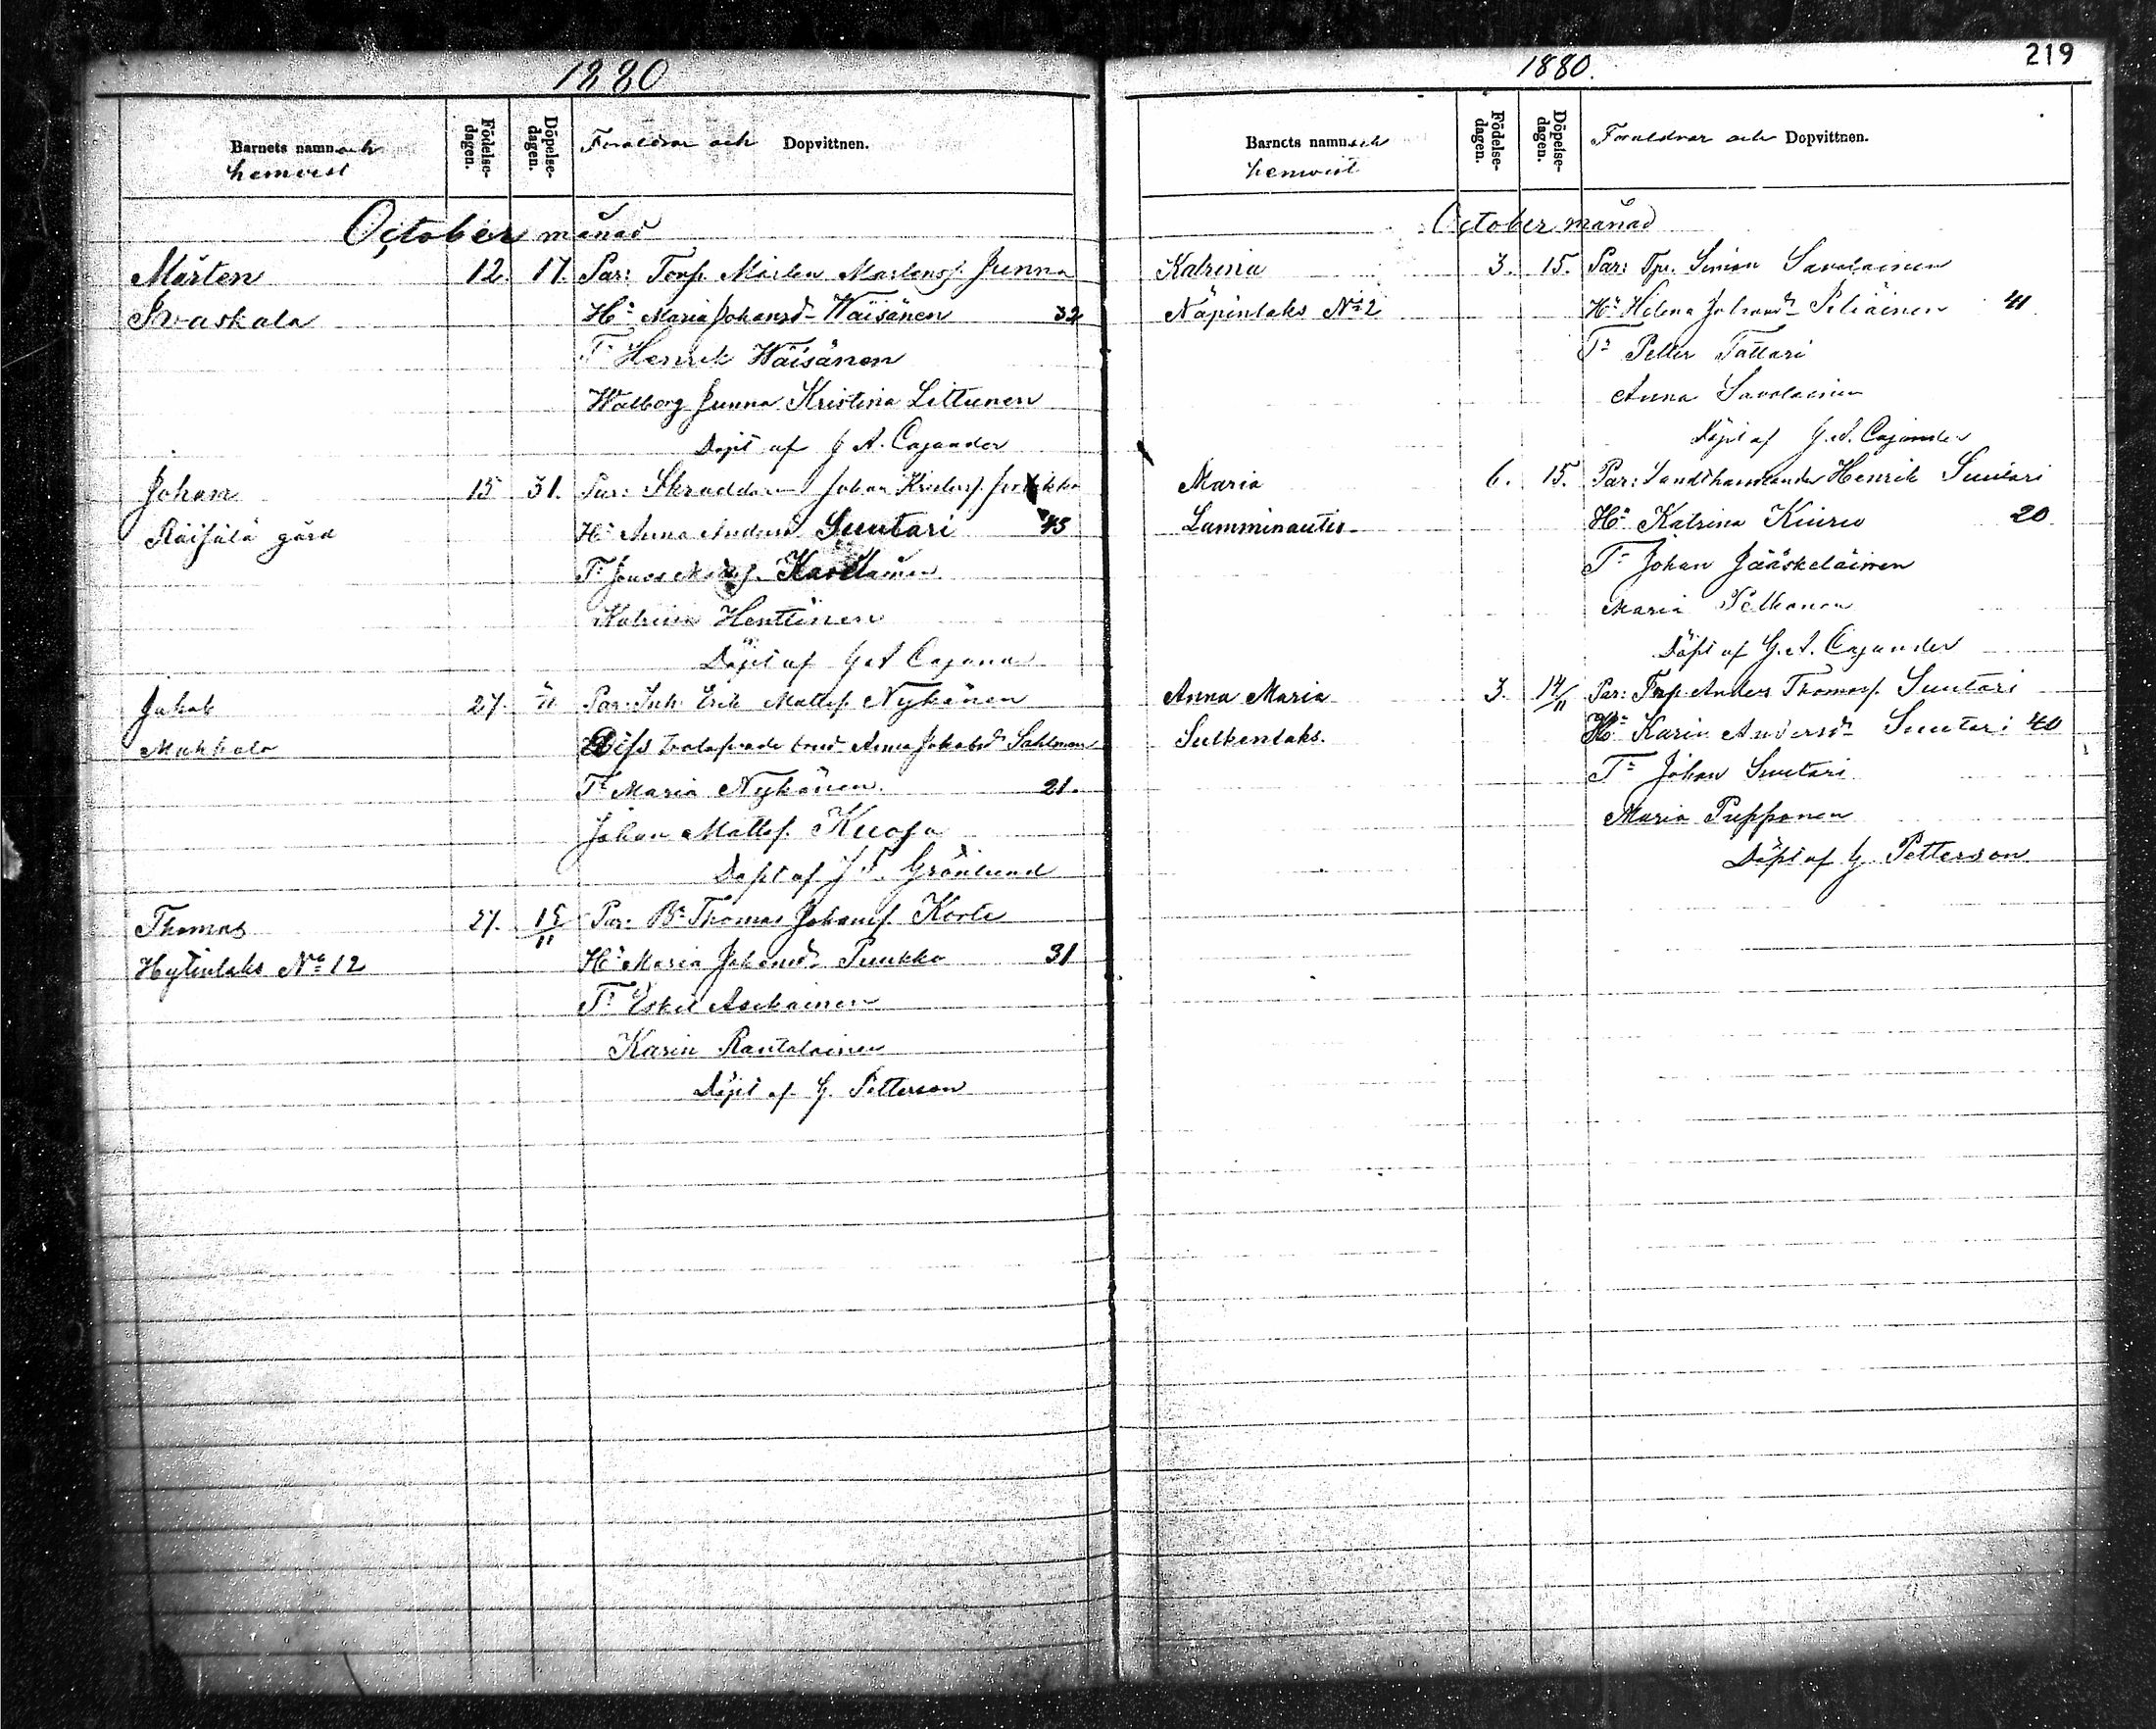 1880
Barnets namn och
hemvist
Födelse-
dagen.
Döpelse-
dagen.
Foraldrar och Dopvittnen.
October månad
Mårten 12. 17. Par: Torp. Mårten Martensf. Junna
Ivaskala Hu Maria Johansd. Wäisänen 32
Tn Henrik Wäisänen
Walborg Junna Kristina Littunen
Döpt af G A. Cajander
Johan 15 31. Par: Skräddaren Johan
Räisälä gård Hu Anna Andersd. Suutari 43
Katrina Henttinen
Döpt af G A Cajand
Jakob 27. Par: Inh. Erik Mattsf. Nykänen
Makkola Anna Jakobsd. Sahlman
Tn Maria Nykänen 21.
Johan Mattsf. Kuosa
Döpt af J. Grönlund
Thomas 27. 15/11 Par. Bn Thomas Johansf. Korte
Hytinlaks No 12 Hu Maria Johansd. Puukko 31
Tn Eskil Asikainen
Karin Rantalainen
Döpt af G. Petterson
219
1880.
Barnets namn och
hemvist
Födelse-
dagen.
Döpelse-
dagen.
Foraldrar och Dopvittnen.
October månad
Katrina 3. 15. Par: Tpr. Simon Savolainen
Näpinlaks No 2 Hu Helena Johansd. Piliäinen 41
Tn Petter Tattari
Anna Savolainen
Döpt af G. A. Cajander
Maria 6. 15. Par: Landthandlanden Henrik Suutari
Lamminautio Hu Katrina Kiuru 20
Tn Johan Jääskeläinen
Maria Pelkonen
Döpt af G. A. Cajander
Anna Maria 3. 14/11 Par: Torp. Anders Thomasf. Suutari
Sulkenlaks. Hu Karin Andersd. Suutari 40
Tn Johan Suutari
Maria Pupponen
Döpt af G Petterson